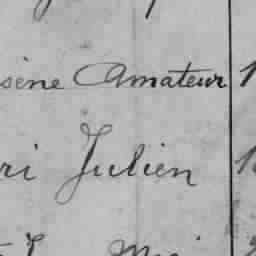 sène Amateur 1
ri Julien 1